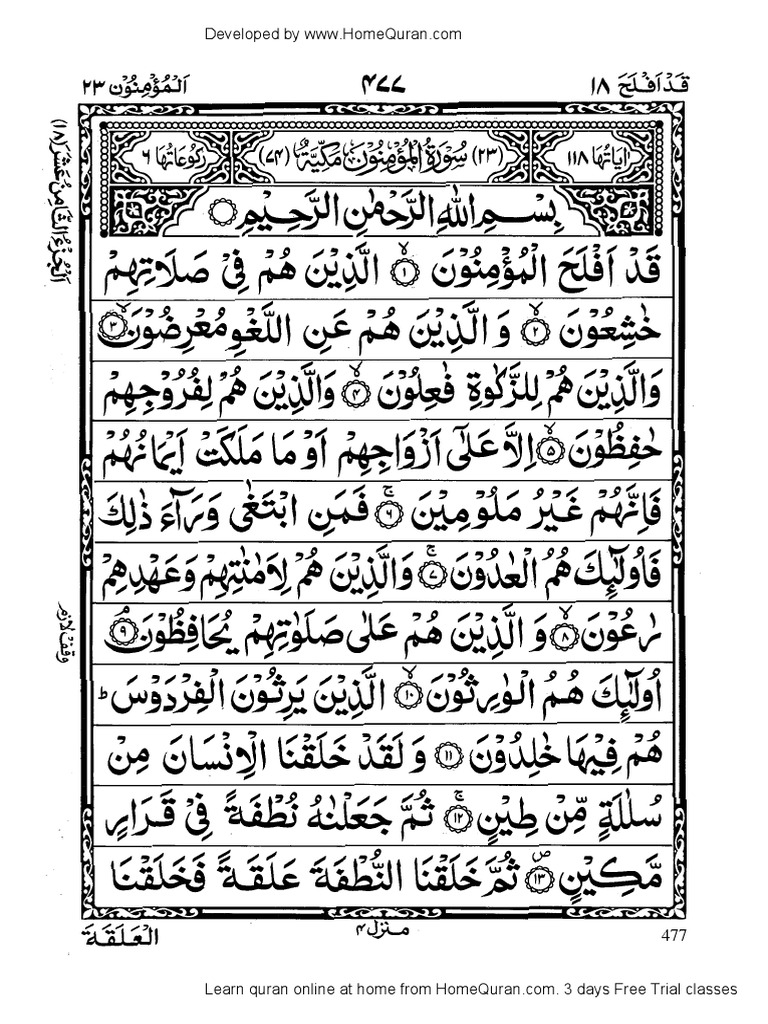 Developed by www.HomeQuran.com
قَدْ اَفْلَحَ ١٨
٤٧٧
اَلْمُؤْمِنُوْن ٢٣
اٰيَاتُهَا ١١٨
(٢٣) سُوْرَةُ الْمُؤْمِنُوْنَ مَكِّيَّةٌ (٧٤)
رُكُوْعَاتُهَا ٦
بِسْمِ اللهِ الرَّحْمٰنِ الرَّحِيْمِ
قَدْ اَفْلَحَ الْمُؤْمِنُوْنَ ۙ١ الَّذِيْنَ هُمْ فِيْ صَلَاتِهِمْ
خٰشِعُوْنَ ۙ٢ وَ الَّذِيْنَ هُمْ عَنِ اللَّغْوِ مُعْرِضُوْنَ ۙ٣
وَالَّذِيْنَ هُمْ لِلزَّكٰوةِ فٰعِلُوْنَ ۙ٤ وَالَّذِيْنَ هُمْ لِفُرُوْجِهِمْ
حٰفِظُوْنَ ۙ٥ اِلَّا عَلٰٓى اَزْوَاجِهِمْ اَوْ مَا مَلَكَتْ اَيْمَانُهُمْ
فَاِنَّهُمْ غَيْرُ مَلُوْمِيْنَ ۚ٦ فَمَنِ ابْتَغٰى وَرَآءَ ذٰلِكَ
فَاُولٰٓئِكَ هُمُ الْعٰدُوْنَ ۚ٧ وَالَّذِيْنَ هُمْ لِاَمٰنٰتِهِمْ وَعَهْدِهِمْ
رٰعُوْنَ ۙ٨ وَ الَّذِيْنَ هُمْ عَلٰى صَلَوٰتِهِمْ يُحَافِظُوْنَ ۘ٩
اُولٰٓئِكَ هُمُ الْوٰرِثُوْنَ ۙ١٠ الَّذِيْنَ يَرِثُوْنَ الْفِرْدَوْسَ ؕ
هُمْ فِيْهَا خٰلِدُوْنَ ١١ وَ لَقَدْ خَلَقْنَا الْاِنْسَانَ مِنْ
سُلٰلَةٍ مِّنْ طِيْنٍ ۚ١٢ ثُمَّ جَعَلْنٰهُ نُطْفَةً فِيْ قَرَارٍ
مَّكِيْنٍ ۪١٣ ثُمَّ خَلَقْنَا النُّطْفَةَ عَلَقَةً فَخَلَقْنَا
اَلْجُزْءُ الثَّامِنُ عَشَرَ (١٨)
وقف لازم
العَلَقَةَ
منزل ٤
477
Learn quran online at home from HomeQuran.com. 3 days Free Trial classes